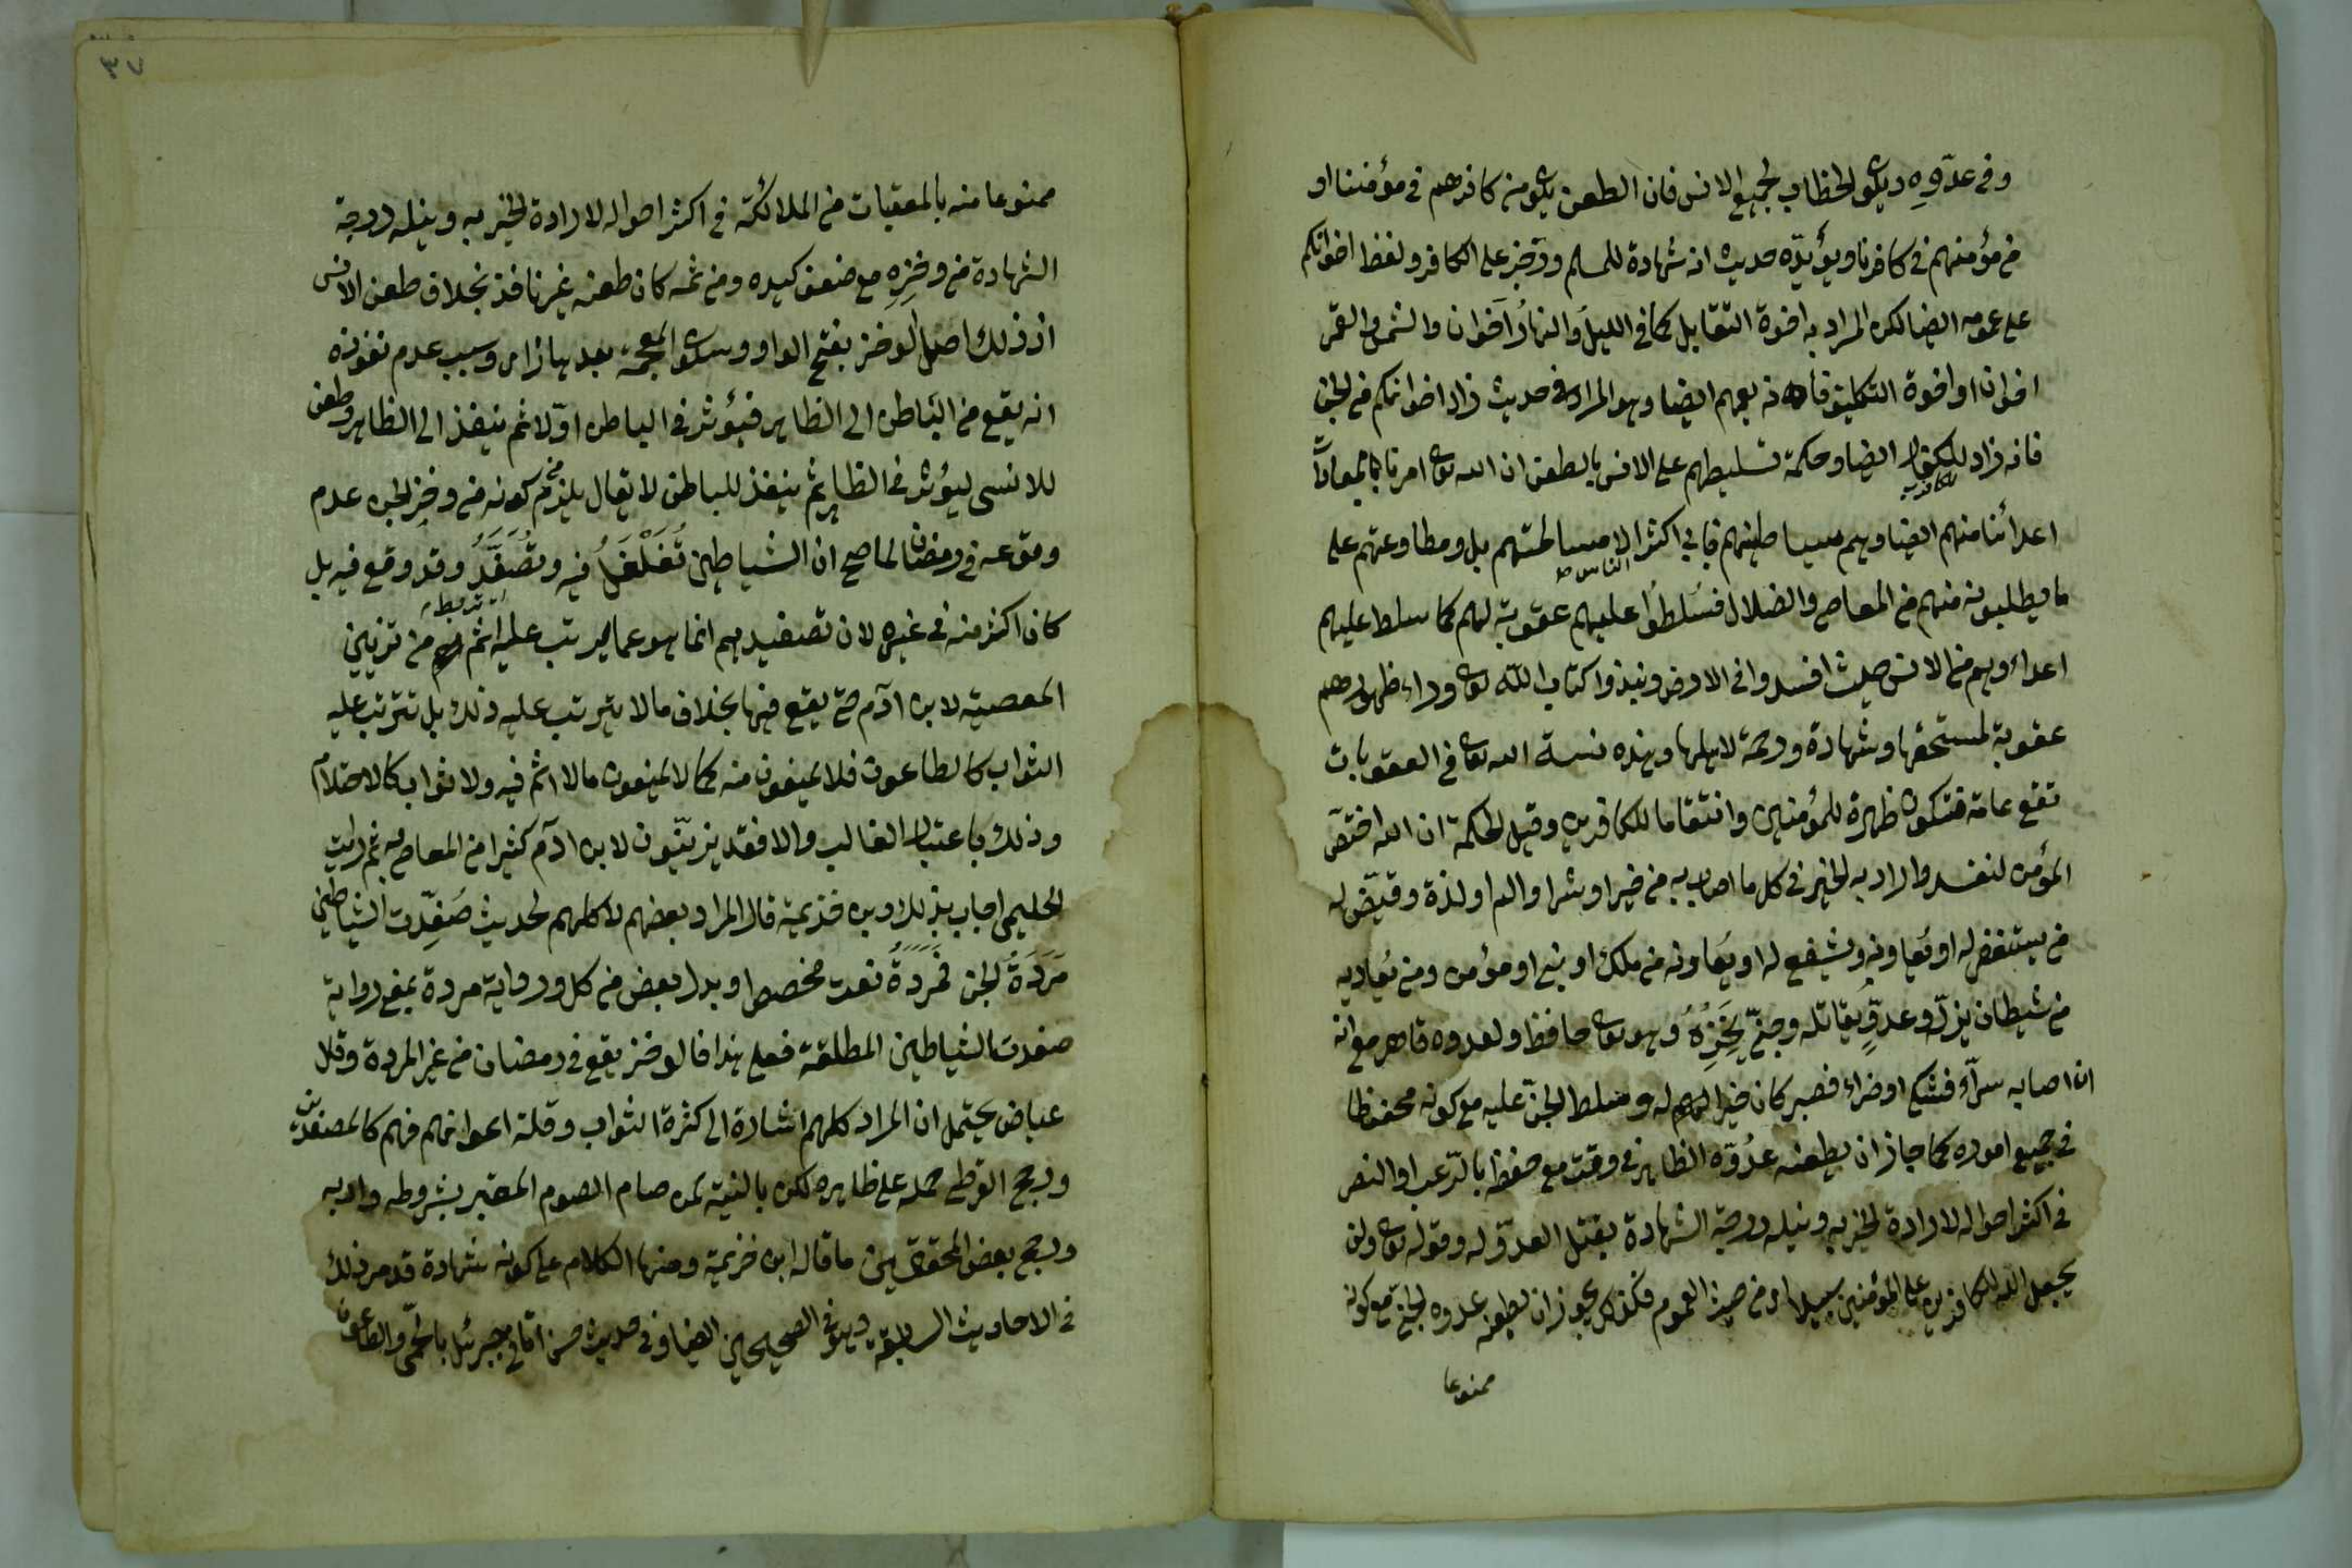 وفي عدوه ويكون الخطاب لجميع الانس فان الطعن يكون من كافرهم في مؤمننا او
من مؤمنهم في كافرنا ويؤيده حديث انه شهادة للمسلم ورجز على الكافر ولفظ اخوانكم
على عمومه ايضا لكن المراد به اخوة التقابل كما في الليل والنهار اخوان والشمس والقمر
اخوان او اخوة التكليف فانه يعمهم ايضا وهو المراد في حديث زاد اخوانكم من الجن
فانه زاد للكفار ايضا وحكمة تسليطهم على الانس بالطعن ان الله تعالى امرنا بمعاداة
اعدائنا منهم ايضا وهم شياطينهم فابى اكثر الناس الا مسالمتهم بل ومطاوعتهم على
ما يطلبونه منهم من المعاصي والضلال فسلطوا عليهم عقوبة لهم كما سلط عليهم
اعداءهم من الانس حيث افسدوا في الارض ونبذوا كتاب الله تعالى وراء ظهورهم
عقوبة لمستحقها وشهادة ورحمة لاهلها وهذه سنة الله تعالى في العقوبات
تقع عامة فتكون طهرة للمؤمنين وانتقاما للكافرين وقيل الحكمة ان الله اختص
المؤمن لنفسه واراد به الخير في كل ما اصابه من خير او شر او الم او لذة وقيض له
من يستغفر له او يعاونه ويشفع له او يعاونه من ملك او نبي او مؤمن ومن يعاديه
من شيطان يزله وعدو يقاتله وجني يخزه وهو تعالى حافظ ولعدوه قاهر مع انه
ان اصابه سراء فشكر او ضراء فصبر كان خيرا له وسلط الجن عليه مع كونه محفوظا
في جميع اموره كما جاز ان يطعنه عدوه الظاهر في وقت مع حفظه بالرعب او النصر
في اكثر احواله لارادة الخير به ونيله درجة الشهادة بقتل العدو له وقوله تعالى ولن
يجعل الله للكافرين على المؤمنين سبيلا اي من حيث العموم فكذلك يجوز ان يطعنه عدوه الجني مع كونه
ممنوعا
٣٧
ممنوعا منه بالمعقبات من الملائكة في اكثر احواله لارادة الخير به ونيله درجة
الشهادة من وخزه مع ضعف كيده ومن ثمه كان طعنه غير نافذ بخلاف طعن الانس
اذ ذلك اصل الوخز بفتح الواو وسكون المعجمة بعدها زاي وسبب عدم نفوذه
انه يقع من الباطن الى الظاهر فيؤثر في الباطن اولا ثم ينفذ الى الظاهر وطعن
الانسي ليؤثر في الظاهر ثم ينفذ للباطن لا يقال يلزم من كونه من وخز الجن عدم
وقوعه في رمضان لما صح ان الشياطين تغلغل فيه وتصفد وقد وقع فيه بل
كان اكثر منه في غيره لان تصفيدهم انما هو عما يرتب عليه اثم من تزيين
المعصية لابن آدم حتى يقع فيها بخلاف ما لا يترتب عليه ذلك بل تترتب عليه
الثواب كالطاعون فلا يمنعون منه كما لا يمنعون مما لا اثم فيه ولا ثواب كالاحتلام
وذلك باعتبار الغالب والا فقد يزينون لابن آدم كثيرا من المعاصي ثم رايت
الحليمي اجاب بذلك وابن خزيمة قال المراد بعضهم لا كلهم لحديث صفدت الشياطين
مردة الجن فمردة نعت مخصص او بدل بعض من كل ورواية مردة بمعنى رواية
صفدت الشياطين المطلقة فعلى هذا فالوخز يقع في رمضان من غير المردة وقال
عياض يحتمل ان المراد كلهم اشارة الى كثرة الثواب وقلة اغوائهم فهم كالمصفدين
ورجح القرطبي حمله على ظاهره لكن بالنسبة لمن صام الصوم المعتبر بشروطه وادابه
ورجح بعض المحققين ما قاله ابن خزيمة ومنها الكلام على كونه شهادة قد مر ذلك
في الاحاديث السابقة وهو في الصحيحين ايضا وفي حديث حسن اتاني جبرئيل بالحمى والطاعون